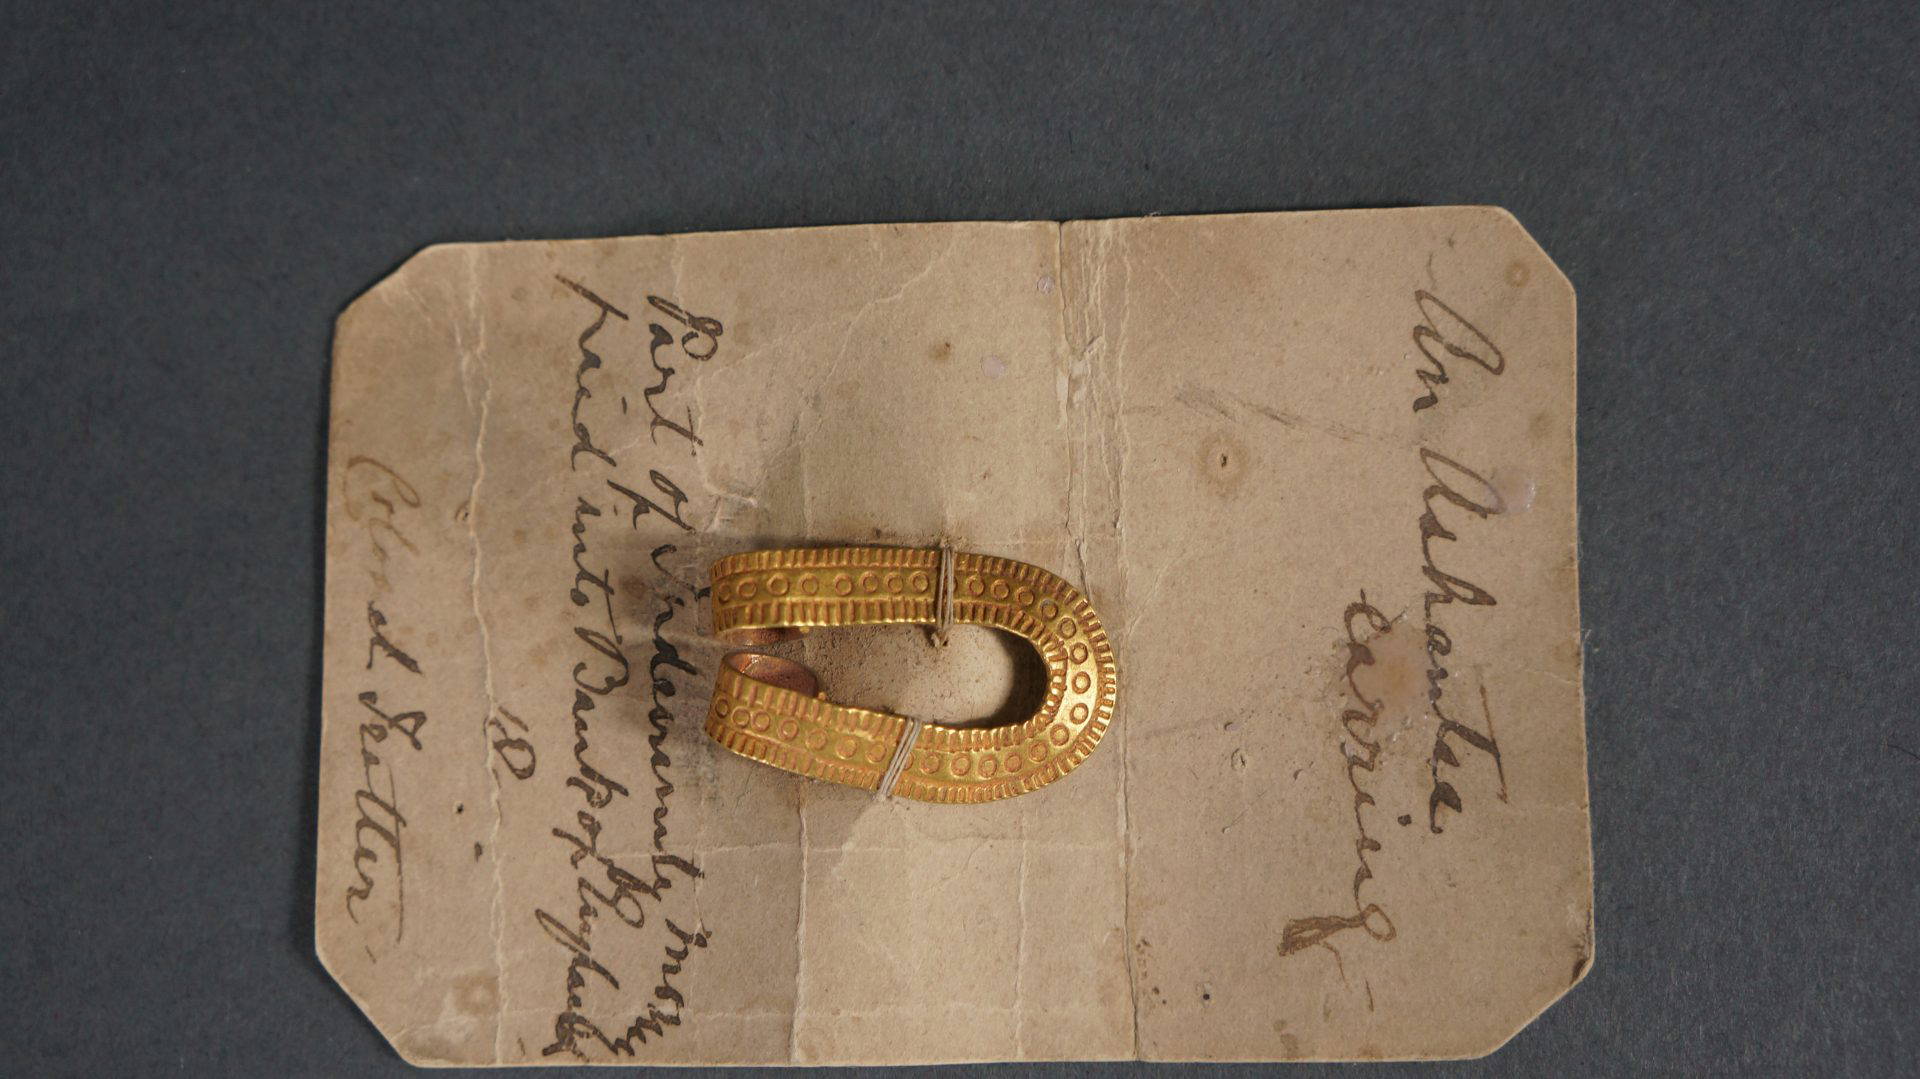 An Ashantia
earring
Part of indemnity money
paid into Bank of England
by
Colonel Trotter